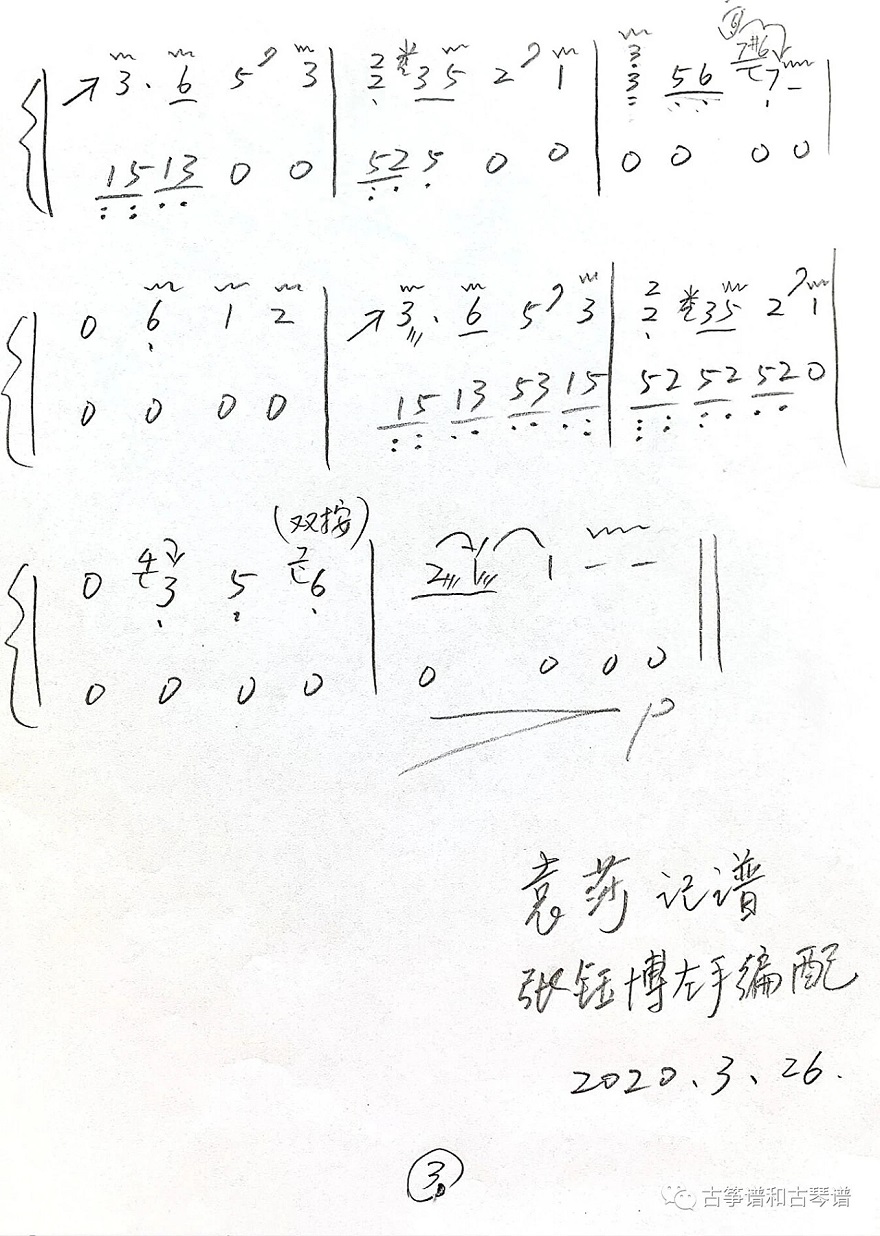 3. 6 5 3 | 2 2 3 5 2 1 | 3 3 5 6 7 #6 7 -
1 5 1 3 0 0 | 5 2 5 0 0 | 0 0 0 0
0 6 1 2 | 3. 6 5 3 | 2 2 3 5 2 1
0 0 0 0 | 1 5 1 3 5 3 1 5 | 5 2 5 2 5 2 0
(双按)
0 4 3 5 7 6 | 2 1 1 - -
0 0 0 0 | 0 0 0 0
p
袁莎 记谱
张钰博左手编配
2020.3.26.
3
古筝谱和古琴谱